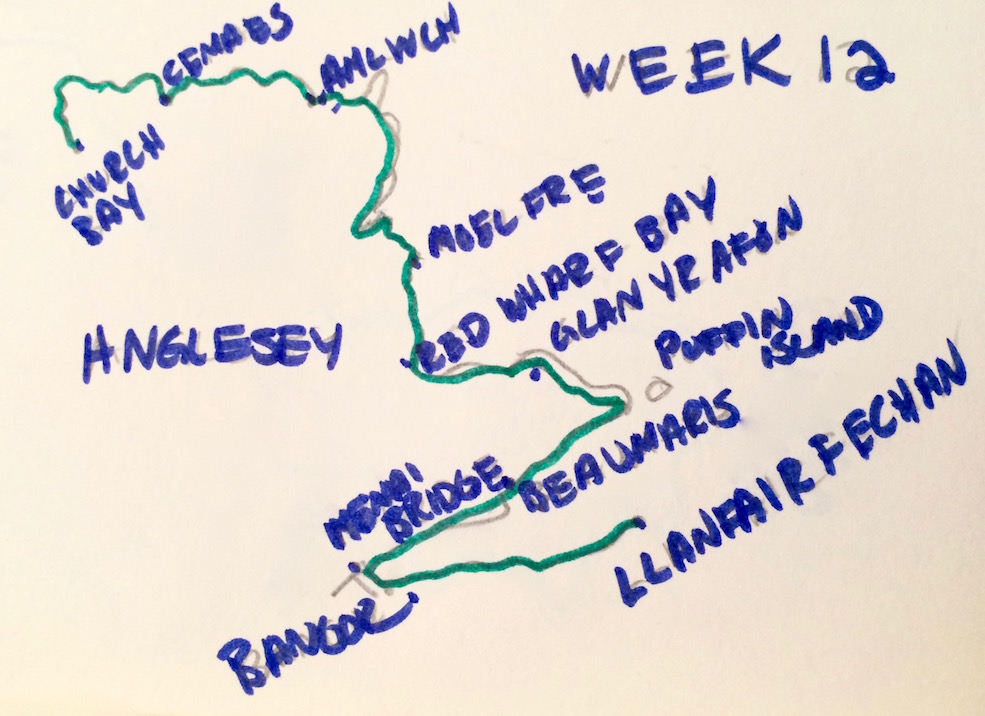 CEMAES
AMLWCH
WEEK 12
CHURCH
BAY
MOELFRE
RED WHARF BAY
GLAN YR AFON
ANGLESEY
PUFFIN
ISLAND
BEAUMARIS
MENAI
BRIDGE
LLANFAIRFECHAN
BANGOR